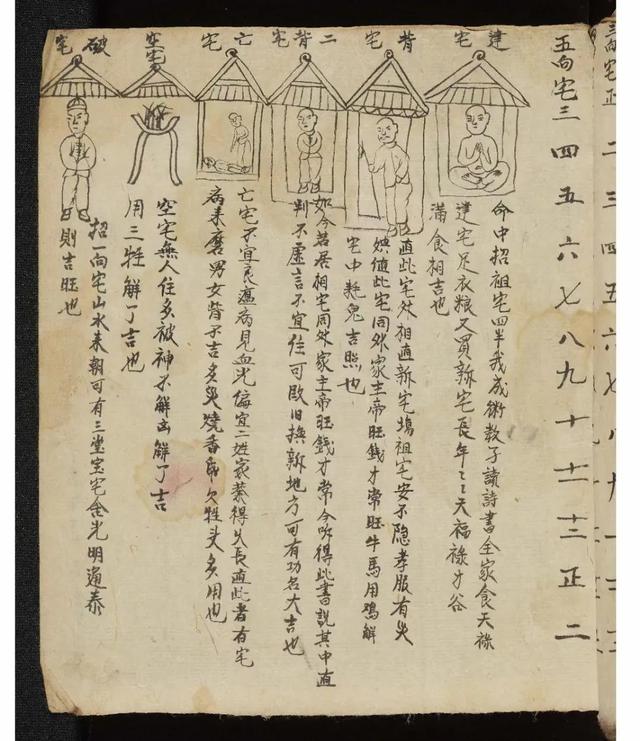 五向宅三四五六七八九十十一十二正二
建宅
背宅
二背宅
亡宅
空宅
破宅
命中招祖宅四半我成術教子讀詩書全家食天祿
建宅足衣粮又買新宅長年々々天福祿才谷
滿食相吉也
直此宅外相逼新宅塲祖宅安不隐孝服有災
殃值此宅同外家主帝旺錢才常旺牛馬用鸡觧
宅中耗鬼吉照也
如今若居相宅同外家主帝旺錢才常今所得此書説其中直
判不虚言不宜住可改旧換新地方可有功名大吉也
亡宅不宜良瘟病見血光偏宜二姓家葉得久長直此者有宅
病来磨男女背不吉多災燒香帛欠牲头多用也
空宅無人住多被神不觧凶觧了吉
用三牲觧了吉也
招一向宅山水来朝可有三堂宝宅舍光明通泰
則吉旺也